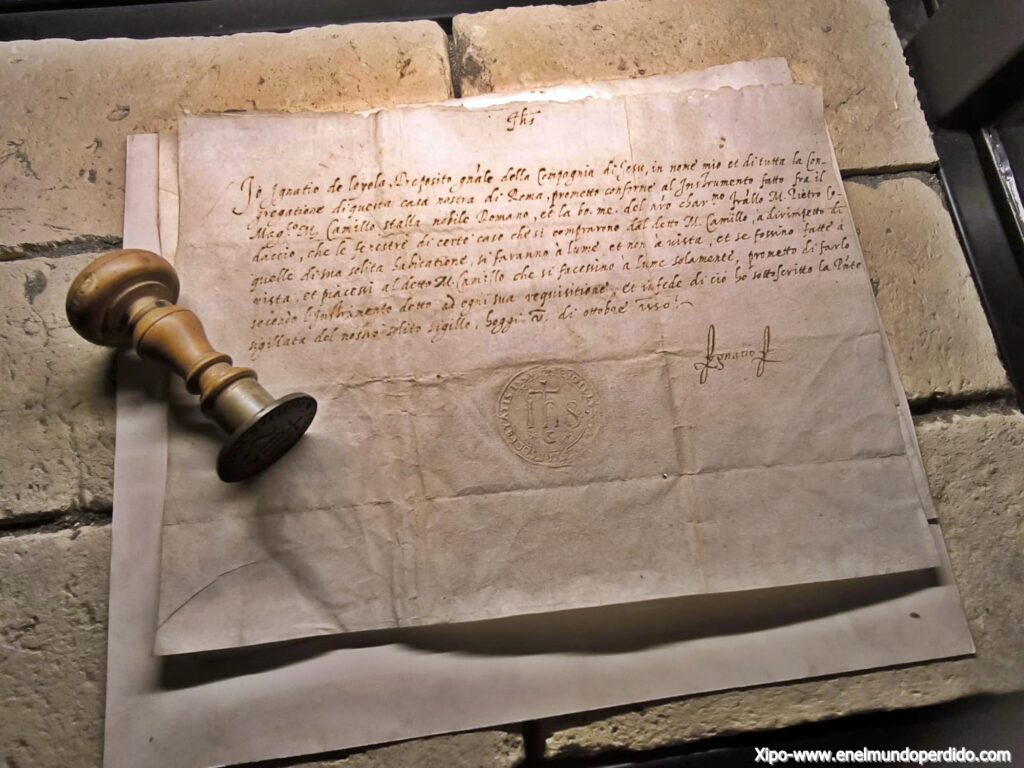 Jhs
Io Ignatio de loyola Preposito gnãle della Compagnia di Jesu, in nome mio et di tutta la Con-
gregatione di questa casa nostra di Roma, prometto conforme al Instrumento fatto fra il
M. Camillo stalla nobile Romano, et la bo. me. del nro M. Pietro Co-
daccio, che le fenestre di certe case che si comprarono dal detto M. Camillo, a dirimpetto di
quelle di sua solita habitatione, si faranno à lume et non a vista, et se fossino fatte à
vista, et piacessi al detto M. Camillo che si facessino à lume solamente, prometto di farlo
secondo l'Instrumento detto, ad ogni sua requisitione, et infede di ciò ho sottoscritto la Pñte
sigillata del nostro solito sigillo, hoggi V. di ottobre
Ignatio
IHS
Xipo-www.enelmundoperdido.com